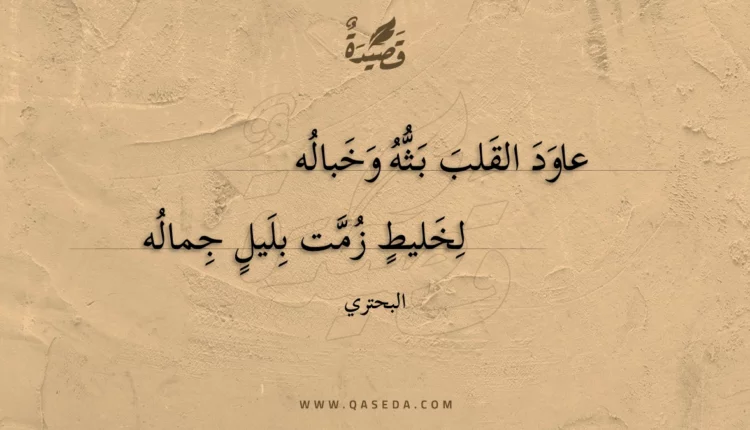 قَصِيدَةٌ
عاوَدَ القَلبَ بَثُّهُ وَخَبالُه
لِخَليطٍ زُمَّت بِلَيلٍ جِمالُه
البحتري
WWW.QASEDA.COM